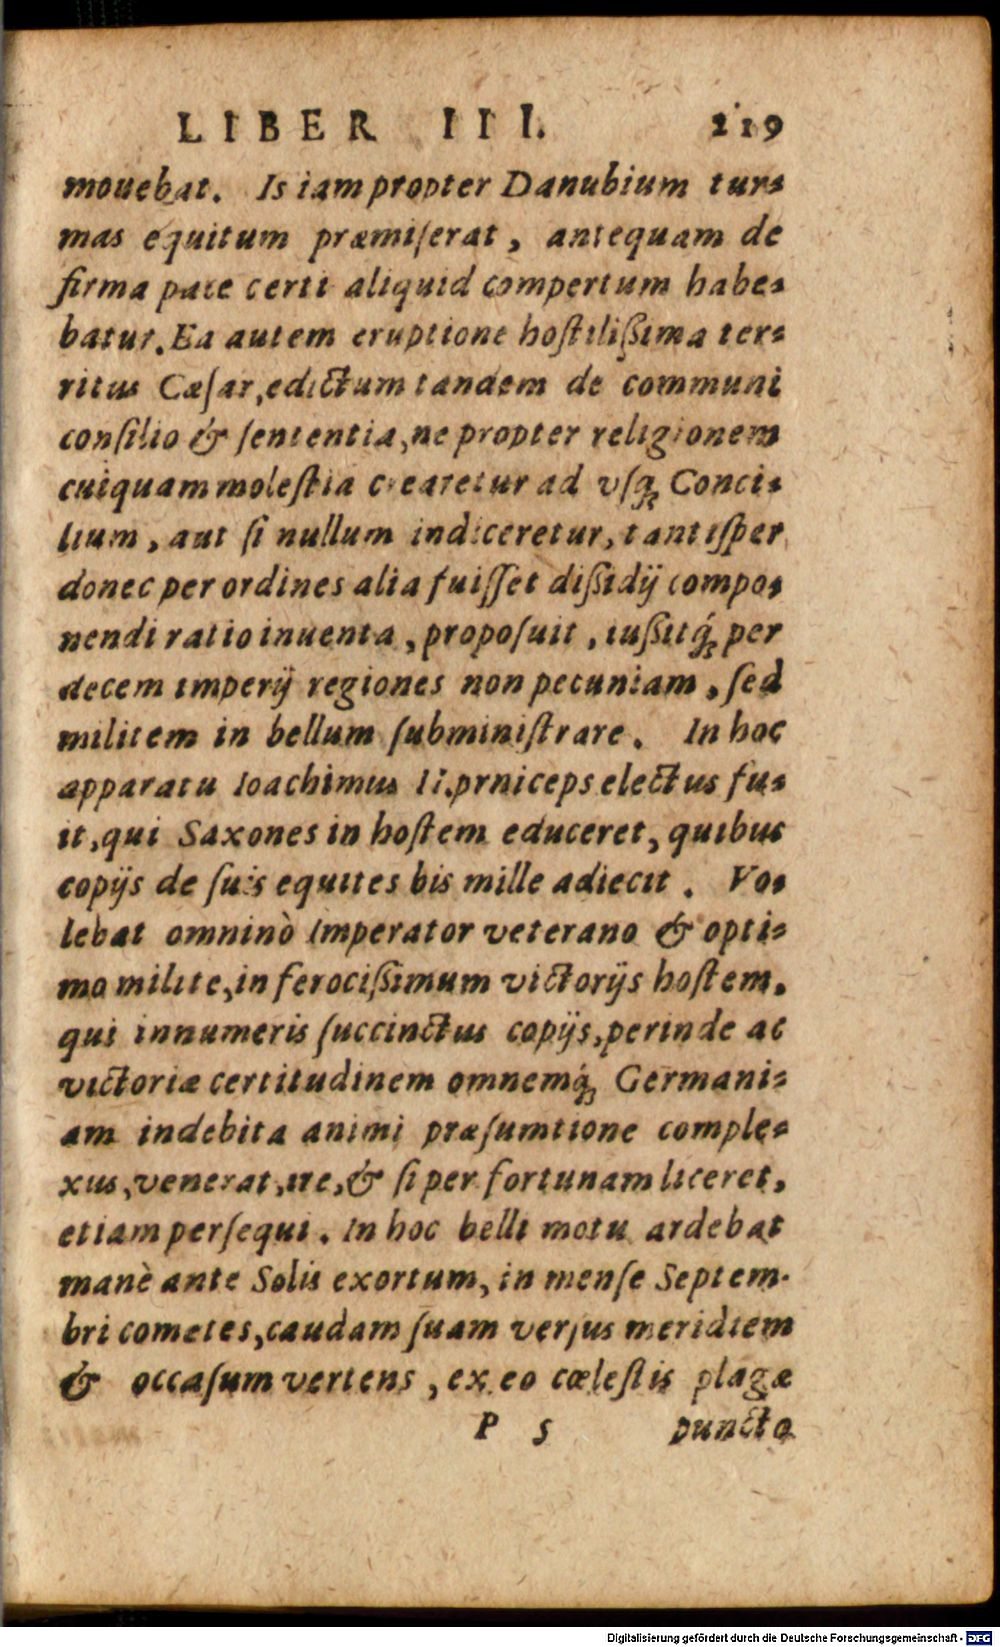 LIBER III. 219
mouebat. Is iam propter Danubium tur-
mas equitum præmiſerat, antequam de
firma pace certi aliquid compertum habe-
batur. Ea autem eruptione hoſtiliſsima ter-
ritus Cæſar, edictum tandem de communi
conſilio & ſententia, ne propter religionem
cuiquam moleſtia crearetur ad vſq; Conci-
lium, aut ſi nullum indiceretur, tantiſper
donec per ordines alia fuiſſet diſsidij compo-
nendi ratio inuenta, propoſuit, iuſsitq́; per
decem imperij regiones non pecuniam, ſed
militem in bellum ſubminiſtrare. In hoc
apparatu Ioachimus II. prniceps electus fu-
it, qui Saxones in hoſtem educeret, quibus
copijs de ſuis equites bis mille adiecit. Vo-
lebat omninò Imperator veterano & opti-
mo milite, in ferociſsimum victorijs hoſtem,
qui innumeris ſuccinctus copijs, perinde ac
victoriæ certitudinem omnemq́; Germani-
am indebita animi præſumtione comple-
xus, venerat, ire, & ſi per fortunam liceret,
etiam perſequi. In hoc belli motu ardebat
manè ante Solis exortum, in menſe Septem-
bri cometes, caudam ſuam verſus meridiem
& occaſum vertens, ex eo cœleſtis plagæ
P 5 puncto
Digitalisierung gefördert durch die Deutsche Forschungsgemeinschaft - DFG